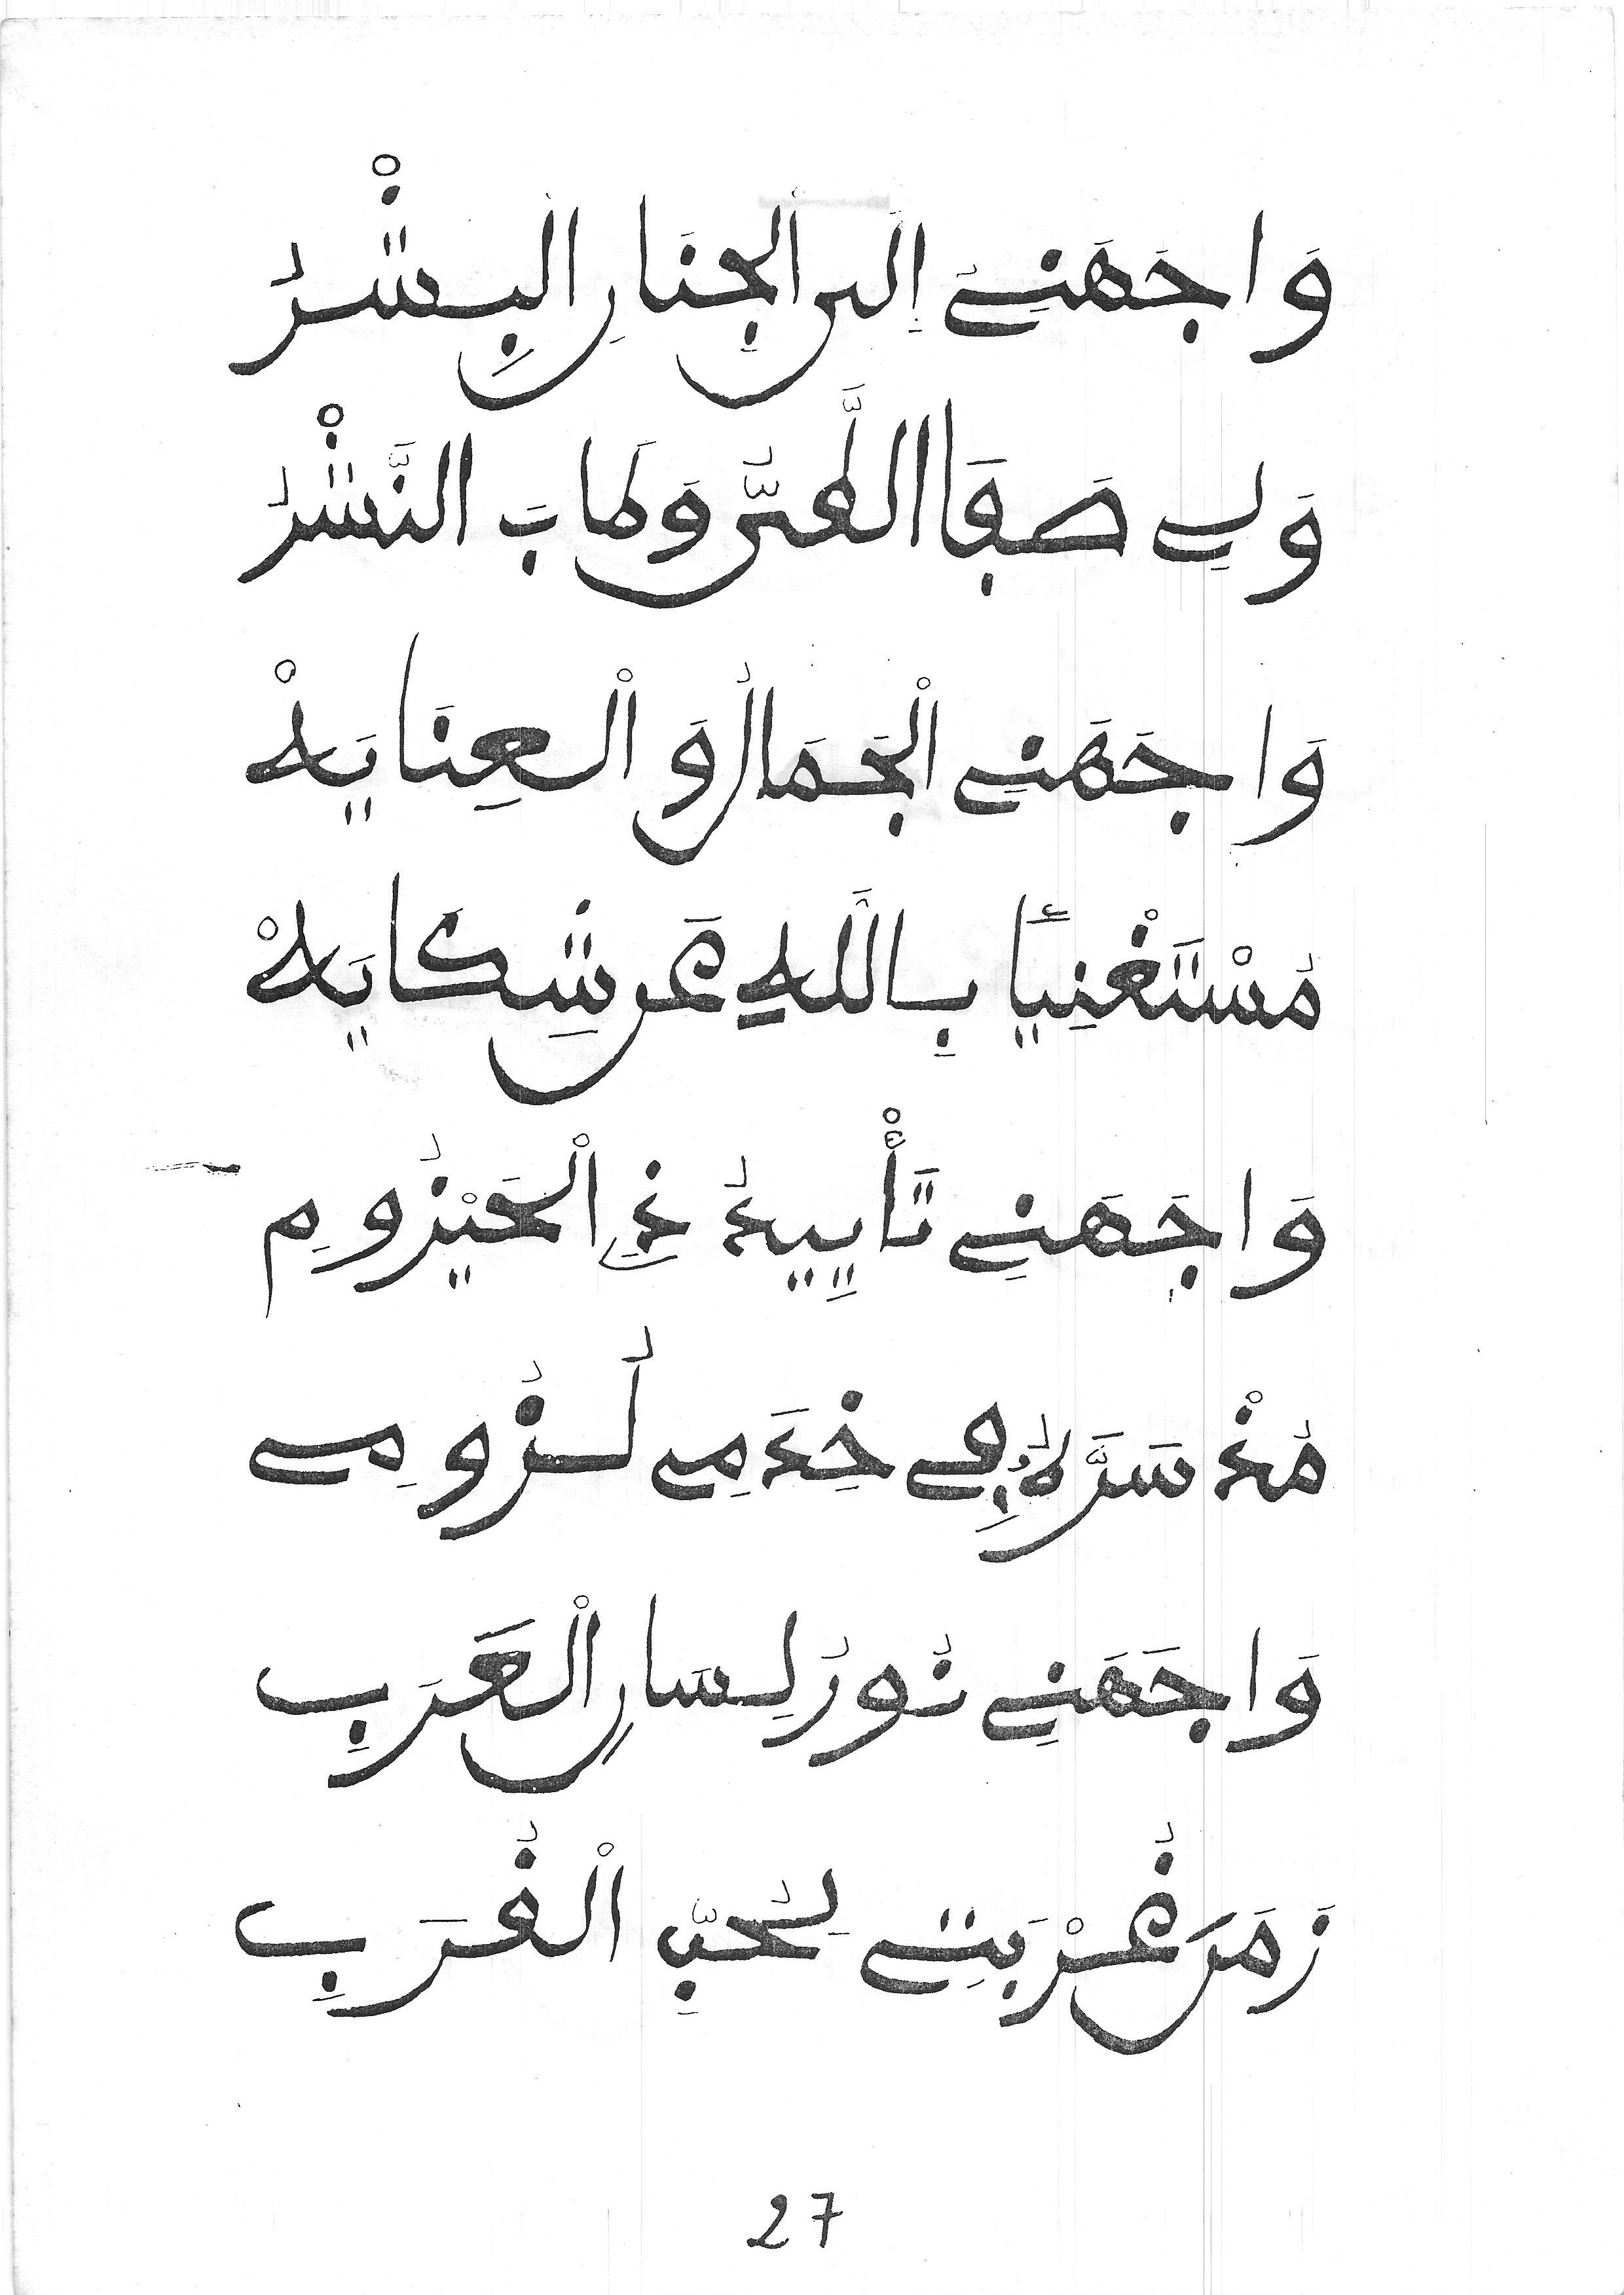 وَاجَهَنِي إِلَى الْجِنَانِ الْبِشْرُ
وَلِي صَفَا السِّرُّ وَطَابَ النَّشْرُ
وَاجَهَنِي الْجَمَالُ وَالْعِنَايَهْ
مُسْتَغْنِيًا بِاللَّهِ عَن شِكَايَهْ
وَاجَهَنِي تَأْيِيدُ ذِي الْحَيْزُومِ
مُذْ سَرَّهُ فِي خِدَمِي لُزُومِي
وَاجَهَنِي نُورُ لِسَانِ الْعَرَبِ
زَمَنَ غُرْبَتِي لِحُبِّ الْقُرَبِ
27